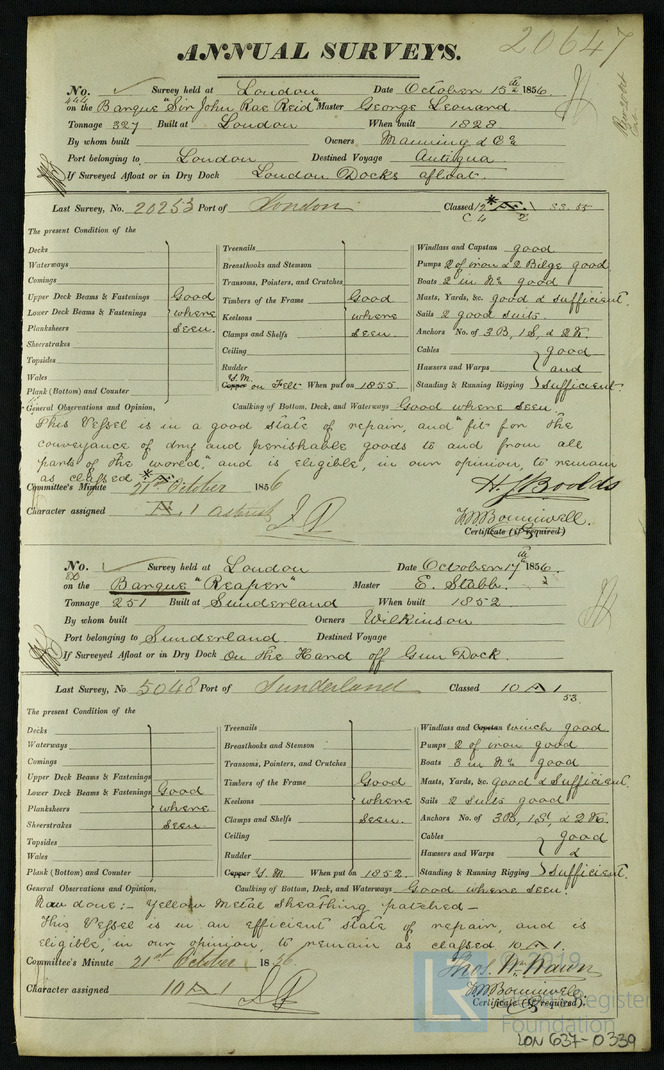 20647
ANNUAL SURVEYS.
No. Survey held at London Date October 15th 1856.
444 on the Barque "Sir John Rae Reid" Master George Leonard
Tonnage 327 Built at London When built 1828
By whom built Owners Manning & Co
Port belonging to London Destined Voyage Antigua
If Surveyed Afloat or in Dry Dock London Docks afloat.
Last Survey, No. 20253 Port of London Classed
The present Condition of the
Decks
Waterways
Comings
Upper Deck Beams & Fastenings Good
Lower Deck Beams & Fastenings where
Planksheers seen.
Sheerstrakes
Topsides
Wales
Plank (Bottom) and Counter
Treenails
Breasthooks and Stemson
Transoms, Pointers, and Crutches
Timbers of the Frame Good
Keelsons where
Clamps and Shelfs seen.
Ceiling
Rudder
Copper Y.M. on Felt When put on 1855
Windlass and Capstan good
Pumps 2 of iron & 2 Bilge good
Boats 2 in No good
Masts, Yards, &c. good & sufficient.
Sails 2 good suits.
Anchors No. of 3B, 1S, & 2K.
Cables good
Hawsers and Warps and
Standing & Running Rigging sufficient.
General Observations and Opinion, Caulking of Bottom, Deck, and Waterways Good where seen.
This Vessel is in a good state of repair, and "fit for the
conveyance of dry and perishable goods to and from all
parts of the world," and is eligible, in our opinion, to remain
as classed *A.
Committee's Minute 21st October 1856
Character assigned A. 1 asterisk
Certificate (if required)
No. Survey held at London Date October 17th 1856.
80 on the Barque "Reaper" Master E. Stabb.
Tonnage 251 Built at Sunderland When built 1852
By whom built Owners Wilkinson
Port belonging to Sunderland. Destined Voyage
If Surveyed Afloat or in Dry Dock On the Hard off Gun Dock.
Last Survey, No 5048 Port of Sunderland Classed 10 A 1
53.
The present Condition of the
Decks
Waterways
Comings
Upper Deck Beams and Fastenings
Lower Deck Beams & Fastenings Good
Planksheers where
Sheerstrakes seen.
Topsides
Wales
Plank (Bottom) and Counter
Treenails
Breasthooks and Stemson
Transoms, Pointers, and Crutches
Timbers of the Frame Good
Keelsons where
Clamps and Shelfs seen.
Ceiling
Rudder
Copper Y. M. When put on 1852.
Windlass and Capstan winch good
Pumps 2 of iron good
Boats 3 in No good
Masts, Yards, &c. good & sufficient.
Sails 2 suits good
Anchors No. of 3B, 1St, & 2K.
Cables good
Hawsers and Warps &
Standing & Running Rigging sufficient.
General Observations and Opinion, Caulking of Bottom, Deck, and Waterways Good where seen.
Now done:- Yellow Metal Sheathing patched-
This Vessel is in an efficient state of repair, and is
eligible, in our opinion, to remain as classed 10 A 1.
Committee's Minute 21st October 1856
Character assigned 10 A 1
Certificate (if required).
LR
© 2019
Lloyd's Register
Foundation
LON 637-0339